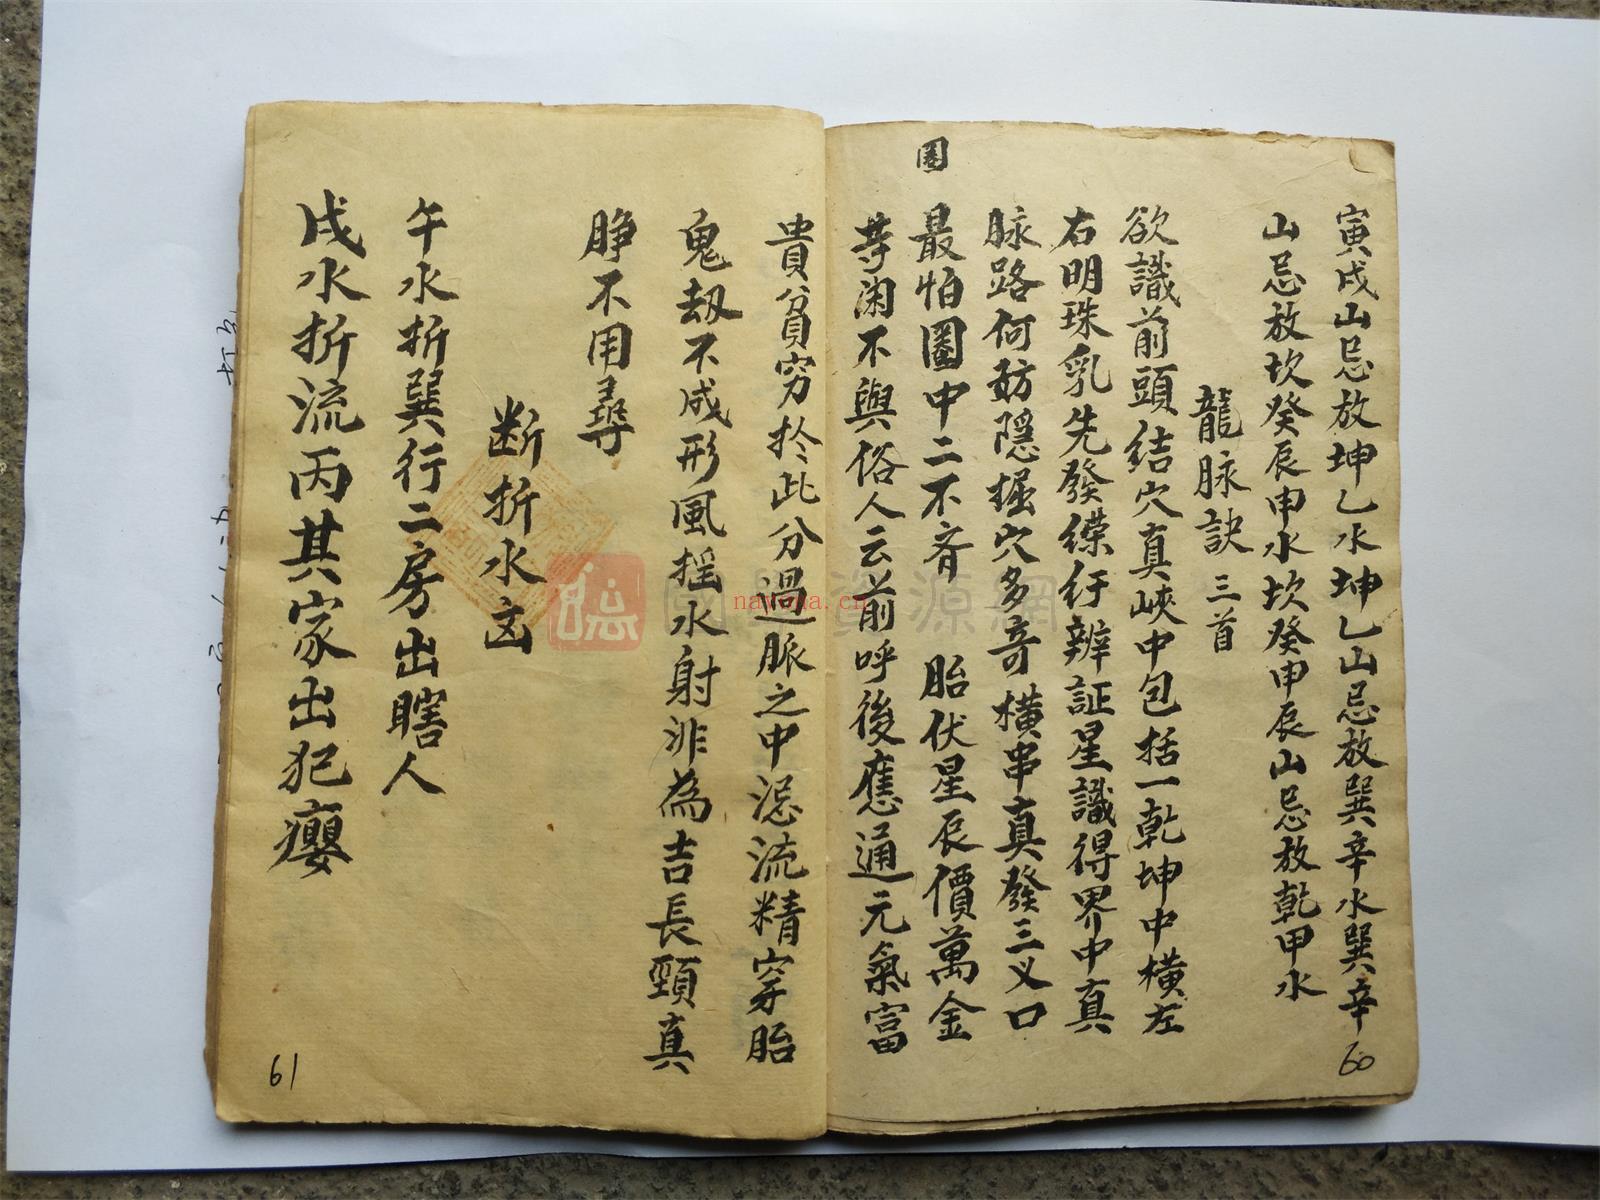 寅戌山忌放坤乙水坤乙山忌放巽辛水巽辛
山忌放坎癸辰申水坎癸申辰山忌放乾甲水
龍脉訣 三首
欲識前頭結穴真峽中包括一乾坤中橫左
右明珠乳先發纆行辨証星識得界中真
脉路何妨隱掘穴多奇橫串真發三义口
圏
最怕圏中二不育 胎伏星辰價萬金
莩闲不與俗人云前呼後應通元氣富
貴貧穷扵此分過脈之中混流精穿胎
鬼刼不成形風摇水射非為吉長頸真
脝不用尋
断折水凶
午水折巽行二房出瞎人
戌水折流丙其家出犯癭
60
61
國學資源網
nayona.cn